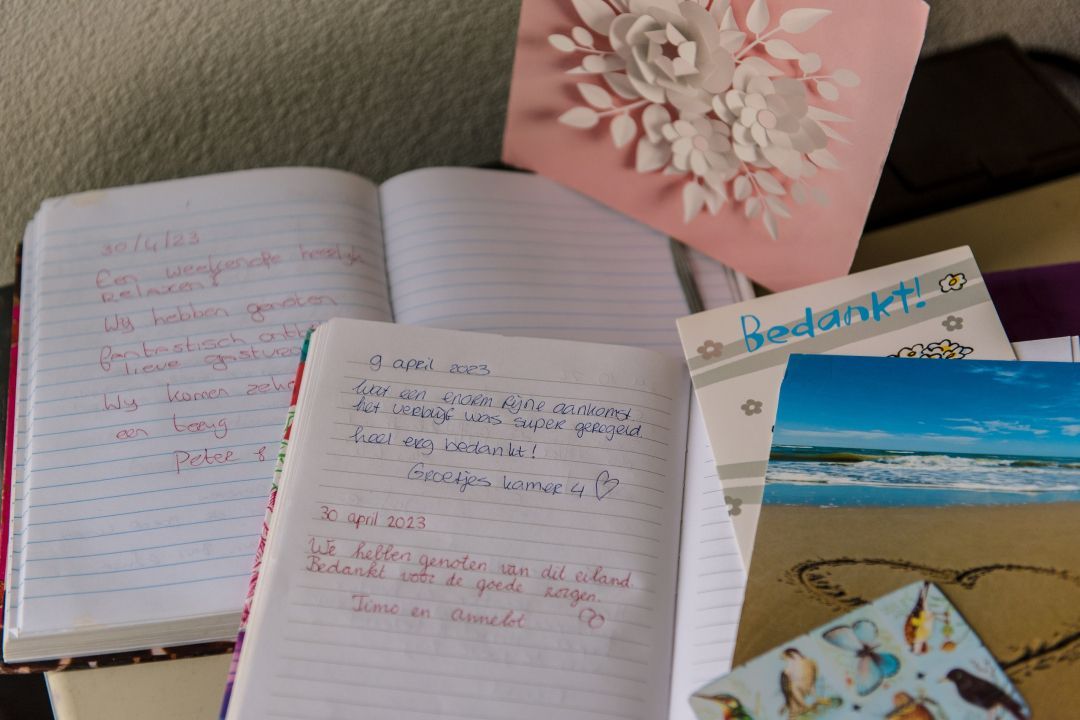 30/4/23
Een weekendje heerlijk
Relaxen!
Wij hebben genoten
fantastisch
lieve
Wij komen
een terug
Peter &
9 april 2023
Wat een enorm fijne aankomst.
het verblijf was super geregeld.
heel erg bedankt!
Groetjes kamer 4
30 april 2023
We hebben genoten van dit eiland.
Bedankt voor de goede zorgen.
Timo en annelot
Bedankt!